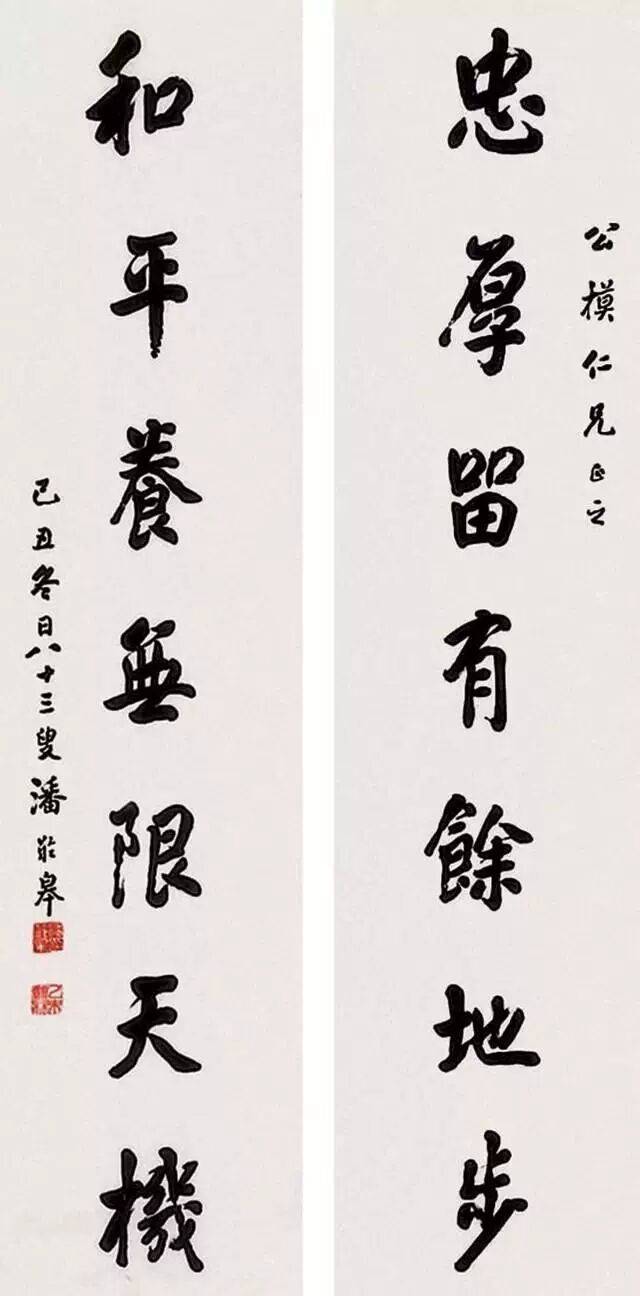 公模仁兄正之
忠厚留有餘地步
和平養無限天機
己丑冬日八十三叟潘龄皋